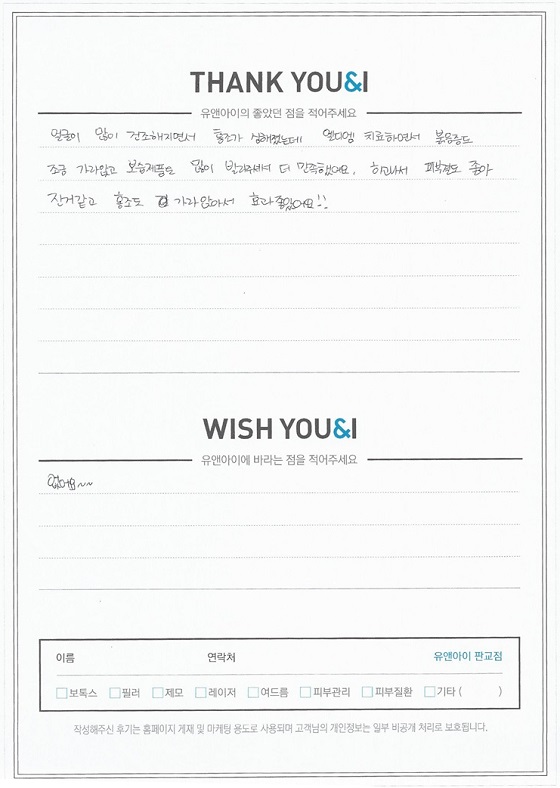 THANK YOU&I
유앤아이의 좋았던 점을 적어주세요
얼굴이 많이 건조해지면서 홍조가 심해졌는데 엘디엠 치료하면서 붉음증도
조금 가라앉고 보습제품도 많이 발라주셔서 더 만족했어요. 하고나서 피부결도 좋아
진거같고 홍조도 가라앉아서 효과좋았어요!!
WISH YOU&I
유앤아이에 바라는 점을 적어주세요
없어요~~
이름 연락처 유앤아이 판교점
보톡스 필러 제모 레이저 여드름 피부관리 피부질환 기타 ( )
작성해주신 후기는 홈페이지 게재 및 마케팅 용도로 사용되며 고객님의 개인정보는 일부 비공개 처리로 보호됩니다.